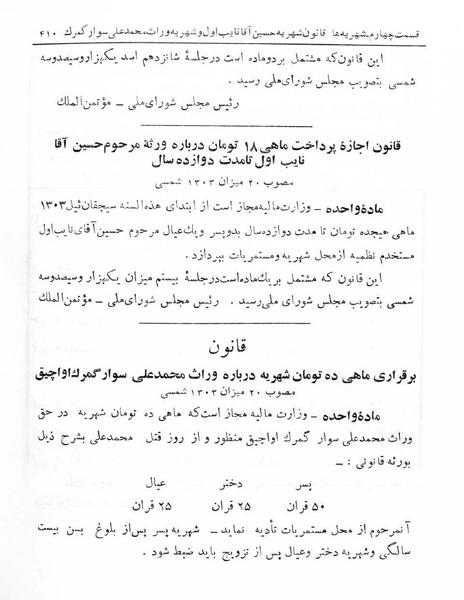 قسمت چهارم شهریه‌ها قانون شهریه حسین آقا نایب اول و شهریه وراث محمدعلی سوار گمرك ۴۱۰
این قانون که مشتمل بر دو ماده است در جلسهٔ شانزدهم اسد یکهزار و سیصد و سه
شمسی بتصویب مجلس شورای ملی رسید .
رئیس مجلس شورای ملی ــ مؤتمن الملك
قانون اجازهٔ پرداخت ماهی ۱۸ تومان درباره ورثهٔ مرحوم حسین آقا
نایب اول تا مدت دوازده سال
مصوب ۲۰ میزان ۱۳۰۳ شمسی
مادهٔ واحده ــ وزارت مالیه مجاز است از ابتدای هذه السنه سیچقان ئیل ۱۳۰۳
ماهی هیجده تومان تا مدت دوازده سال بدو پسر و یك عیال مرحوم حسین آقای نایب اول
مستخدم نظمیه از محل شهریه و مستمریات بپردازد .
این قانون که مشتمل بر یك ماده است در جلسهٔ بیستم میزان یکهزار و سیصد و سه
شمسی بتصویب مجلس شورای ملی رسید . رئیس مجلس شورای ملی ــ مؤتمن الملك
قانون
برقراری ماهی ده تومان شهریه درباره وراث محمدعلی سوار گمرك اواجیق
مصوب ۲۰ میزان ۱۳۰۳ شمسی
مادهٔ واحده ــ وزارت مالیه مجاز است که ماهی ده تومان شهریه در حق
وراث محمدعلی سوار گمرك اواجیق منظور و از روز قتل محمدعلی بشرح ذیل
بورثه قانونی : ــ
پسر دختر عیال
۵۰ قران ۲۵ قران ۲۵ قران
آنمرحوم از محل مستمریات تأدیه نماید ــ شهریه پسر پس از بلوغ بسن بیست
سالگی و شهریه دختر و عیال پس از تزویج باید ضبط شود .